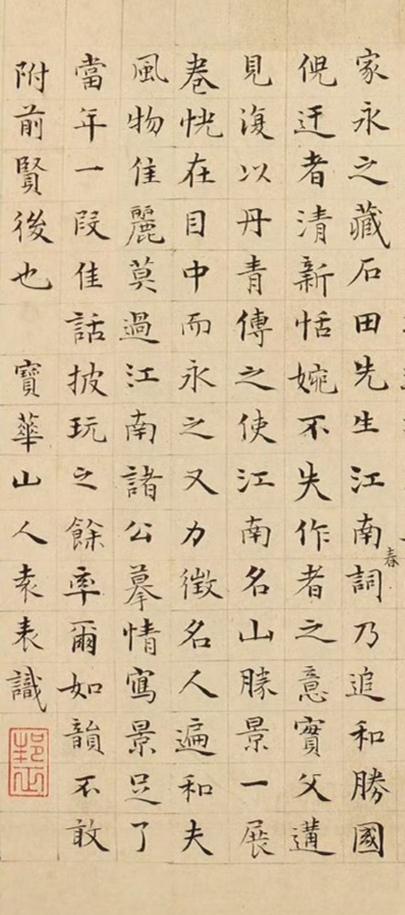 家永之藏石田先生江南春詞乃追和勝國
倪迂者清新恬婉不失作者之意實父遘
見復以丹青傳之使江南名山勝景一展
卷恍在目中而永之又力徵名人遍和夫
風物佳麗莫過江南諸公摹情寫景足了
當年一段佳話披玩之餘率爾如韻不敢
附前賢後也 寶華山人袁表識